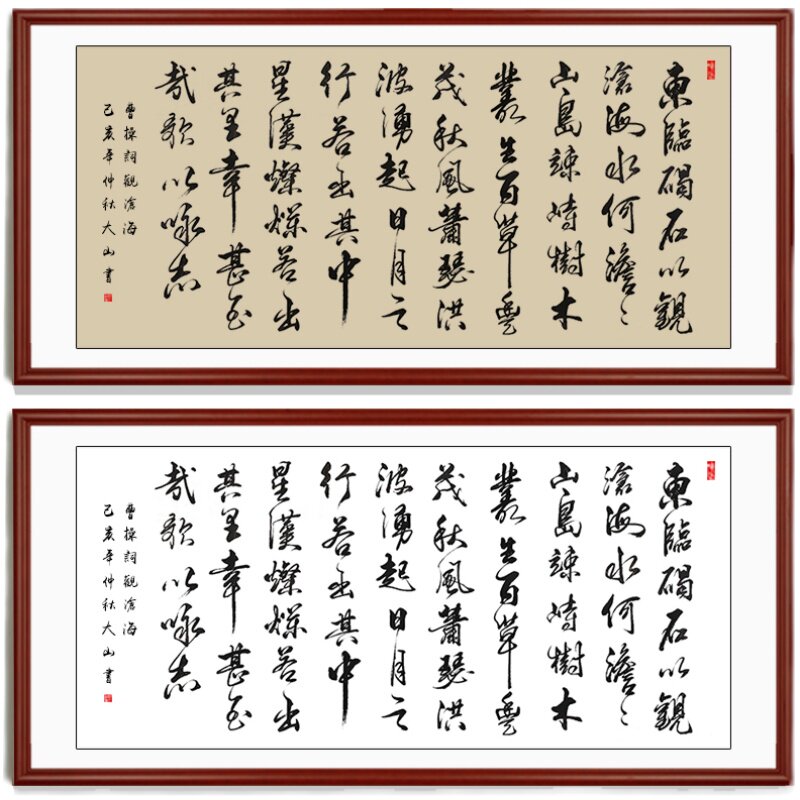 東臨碣石以觀
滄海水何澹〻
山島竦峙樹木
叢生百草豐
茂秋風蕭瑟洪
波湧起日月之
行若出其中
星漢燦爛若出
其里幸甚至
哉歌以咏志
曹操詞觀滄海
己亥年仲秋大山書
東臨碣石以觀
滄海水何澹〻
山島竦峙樹木
叢生百草豐
茂秋風蕭瑟洪
波湧起日月之
行若出其中
星漢燦爛若出
其里幸甚至
哉歌以咏志
曹操詞觀滄海
己亥年仲秋大山書